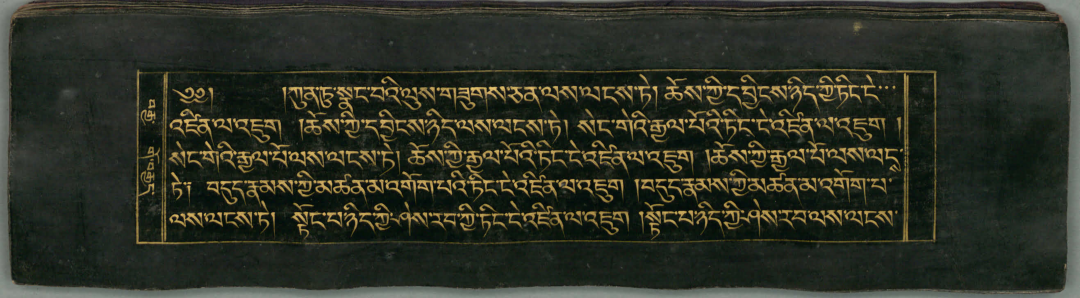 ༄༅། །ཀུན་ཏུ་སྣང་བའི་ལུས་གཟུགས་ཅན་ལས་ལངས་ཏེ། ཆོས་ཀྱི་དབྱིངས་ཉིད་ཀྱི་ཏིང་ངེ་
འཛིན་ལ་འཇུག །ཆོས་ཀྱི་དབྱིངས་ཉིད་ལས་ལངས་ཏེ། སེང་གེའི་རྒྱལ་པོའི་ཏིང་ངེ་འཛིན་ལ་འཇུག །
སེང་གེའི་རྒྱལ་པོ་ལས་ལངས་ཏེ། ཆོས་ཀྱི་རྒྱལ་པོའི་ཏིང་ངེ་འཛིན་ལ་འཇུག །ཆོས་ཀྱི་རྒྱལ་པོ་ལས་ལངས་
ཏེ། བདུད་རྣམས་ཀྱི་མཚན་མ་འགོག་པའི་ཏིང་ངེ་འཛིན་ལ་འཇུག །བདུད་རྣམས་ཀྱི་མཚན་མ་འགོག་པ་
ལས་ལངས་ཏེ། སྟོང་པ་ཉིད་ཀྱི་ཤེས་རབ་ཀྱི་ཏིང་ངེ་འཛིན་ལ་འཇུག །སྟོང་པ་ཉིད་ཀྱི་ཤེས་རབ་ལས་ལངས་